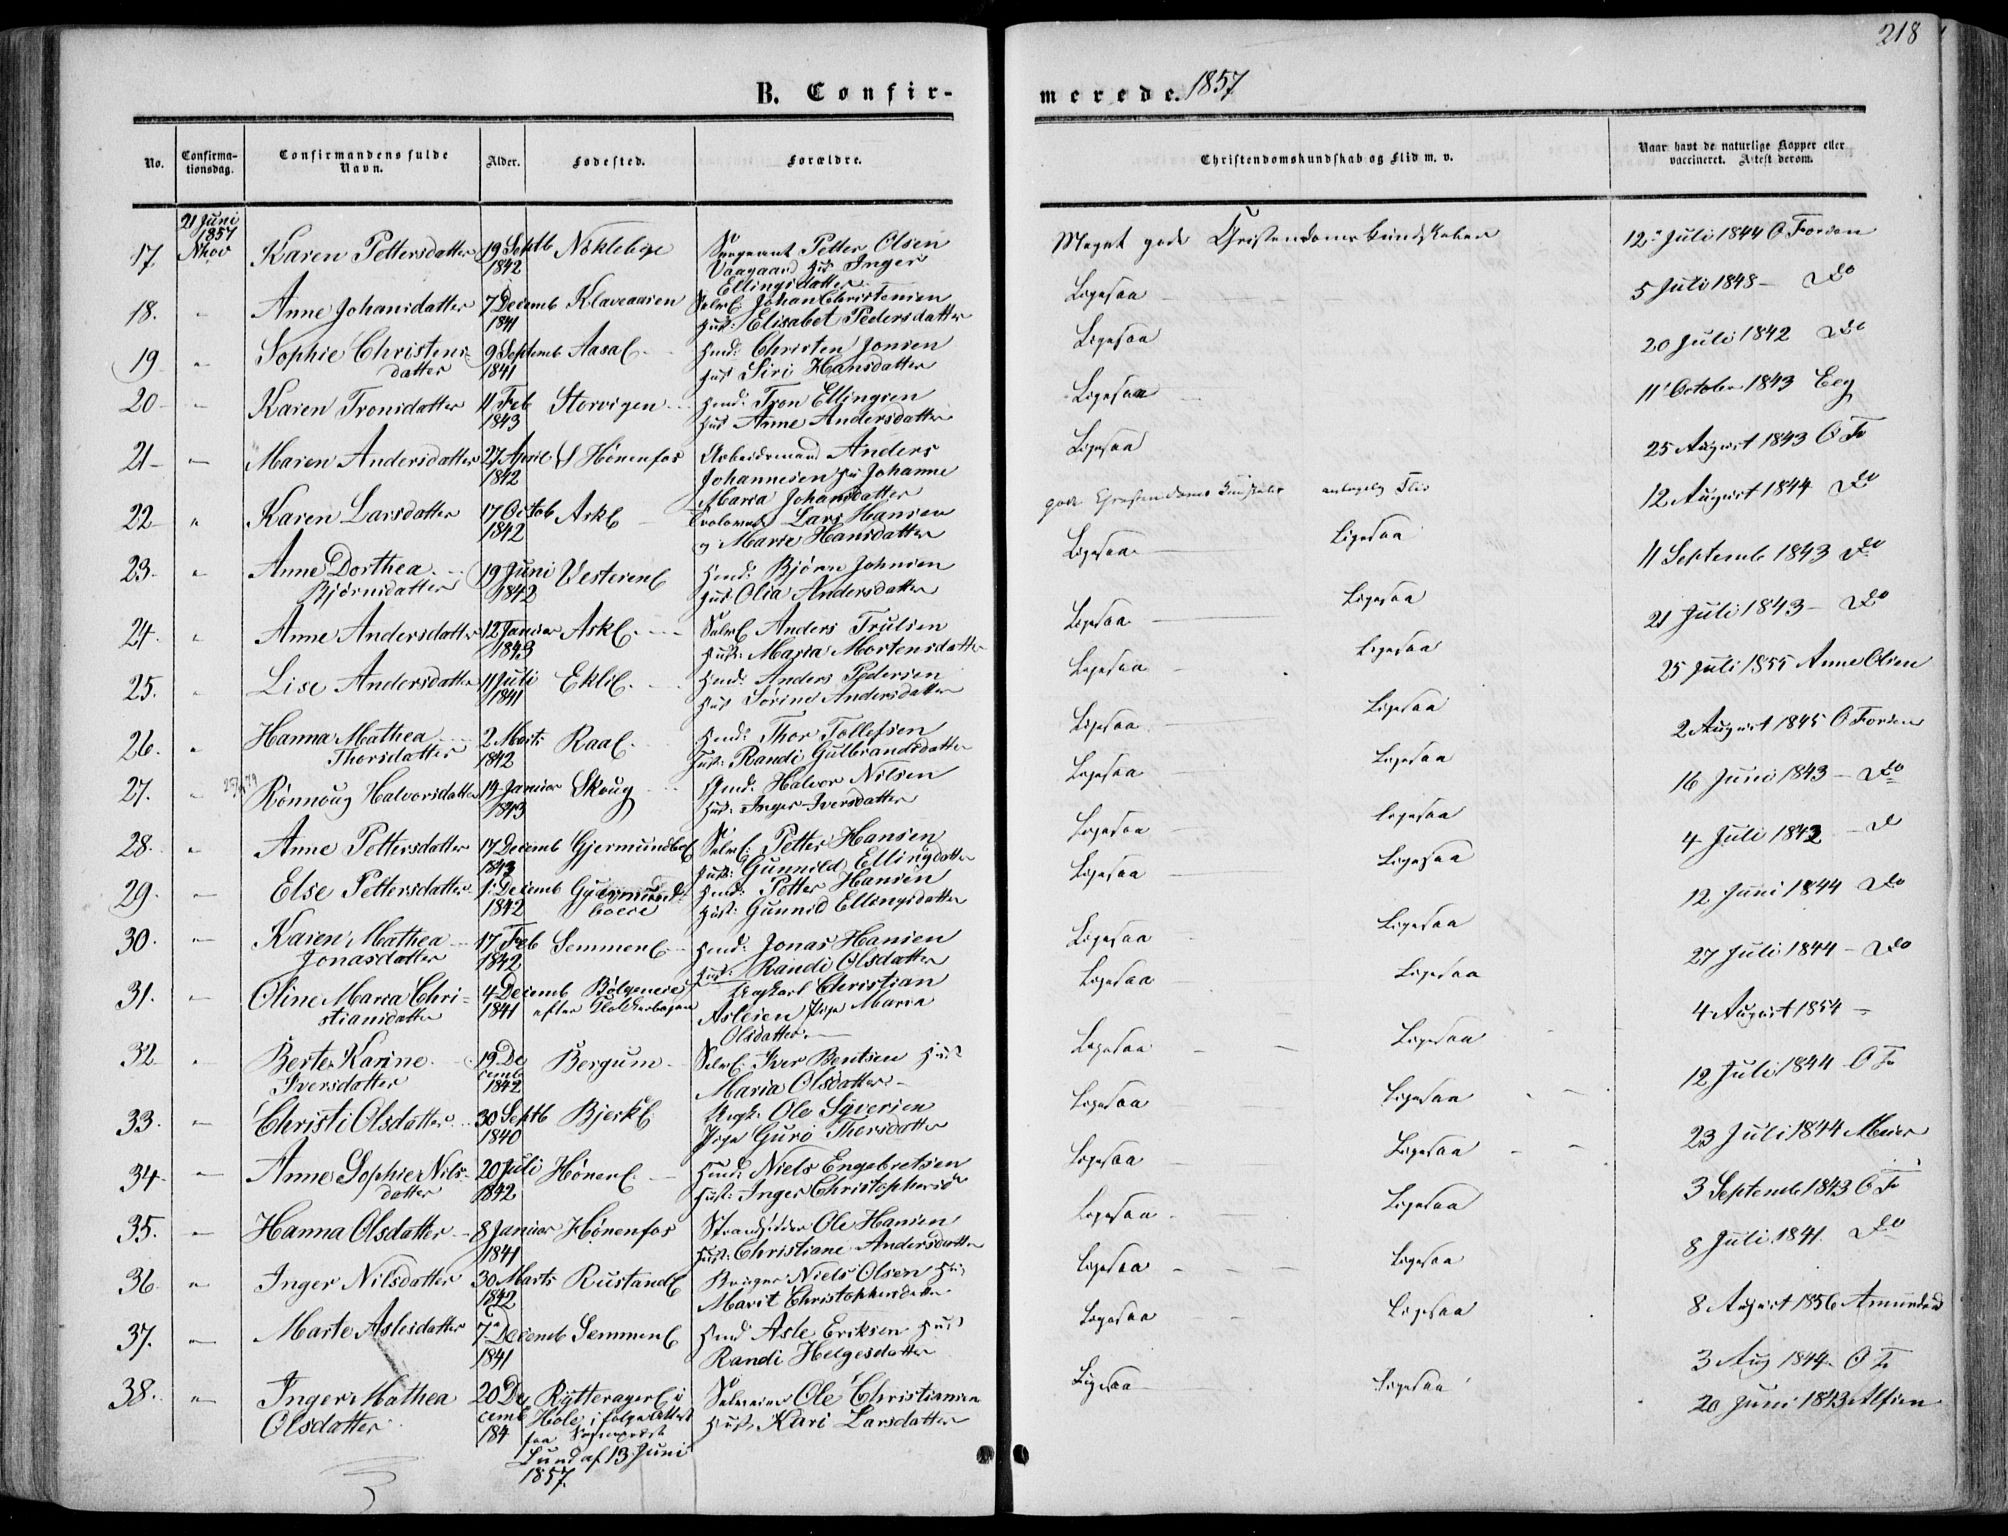 218
B. Confir-
merede. 1857
No.
Confirma-
tionsdag.
Confirmandens fulde
Navn.
Alder.
Fødested.
Forældre.
Christendomskundskab og Flid m. v.
Naar havt de naturlige Kopper eller
vaccineret. Attest derom.
21 Juni
1857
17. Nhov Karen Pettersdatter 19 Septb 1842
Sergeant Petter Olsen
Inger
Ellingsdatter
Meget gode Christendomskundskaber
12 Juli 1844 O Forsen
18. " Anne Johansdatter 7 Decemb 1841
Johan Christensen
Hust: Elisabet Pedersdatter
Ligesaa
5 Juli 1848 - Do
19 " Sophie Christens-
datter 9 Septemb 1841 Aasal
Hmd: Christen Jonsen
Hust Siri Hansdatter
Ligesaa
20 Juli 1842 Do
20 - " Karen Tronsdatter 11 Feb 1843 Storvigen
Hmd: Tron Ellingsen
Hust Anne Andersdatter
Ligesaa
11 October 1843 Eeg
21 - " Maren Andersdatter 27 April 1842 Hønenfos
Arbeidsmand Anders
Johannesen Hu Johanne
Maria Johansdatter
Ligesaa
25 August 1843 O Fo
22 " Karen Larsdatter 17 Octob 1842 AskE
Lars Hansen
og Marte Hansdatter
gode Christendoms Kundskaber Flid
12 August 1844 Do
23. " Anne Dorthea
Bjørnsdatter 19 Juni 1842 VesterenE
Hmd: Bjørn Johnsen
Hust Olia Andersdatter
Ligesaa Ligesaa
11 Septemb 1843 Do
24. " Anne Andersdatter 12 Januar 1843 AskE.
Anders Trulsen
Hust: Maria Mortensdatter
Ligesaa Ligesaa
21 Juli 1843 - Do
25. " Lise Andersdatter 11 Juli 1841 EkliE.
Hmd: Anders Pedersen
Hust Sørine Andersdatter
Ligesaa Ligesaa
25 Juli 1855 Anne Olsen
26. " Hanna Mathea
Thorsdatter 2 Marts 1842 RaaE.
Hmd: Thor Tollefsen
Hust: Randi Gulbrandsdatter
Ligesaa Ligesaa
2 August 1845 O Forsen
27. " Rønnoug Halvorsdatter 19 Januar 1843 Skoug
Gmd: Halvor Nilsen
Hust: Inger Iversdatter
Ligesaa Ligesaa
16 Juni 1843 - Do
28. " Anne Pettersdatter 17 Decemb 1843 GjermundboE
Petter Hansen
Hust: Gunnild Ellingsdatter
Ligesaa Ligesaa
4 Juli 1842 - D
29. " Else Pettersdatter 1 Decemb 1842
Hmd: Petter Hansen
Hust: Gunnild Ellingsdatter
Ligesaa Ligesaa
12 Juni 1844 Do
30. " Karen Mathea
Jonasdatter 17 Feb 1842 SemmenE
Hmd: Jonas Hansen
Hust: Randi Olsdatter
Ligesaa Ligesaa
27 Juli 1844 - Do
31. " Oline Maria Chri-
stiansdatter 4 Decemb 1841
Ungkarl Christian
Aslesen Pige Maria
Olsdatter
Ligesaa Ligesaa
4 August 1854 -
32 " Berte Karine
Iversdatter 19 De
cemb
1842 Bergum
Iver Bentsen Hust
Maria Olsdatter
Ligesaa Ligesaa
12 Juli 1844 O Fo
33. " Christi Olsdatter 30 Septb 1840 BjerkE
Ungk: Ole Syversen
Pige Guro Thorsdatter
Ligesaa Ligesaa
23 Juli 1844 Meier
34 " Anne Sophie Nils-
datter 20 Juli 1842 HønenE.
Hmd: Niels Engebretsen
Hust: Inger Christophersd
Ligesaa Ligesaa
3 Septemb 1843 O Fo
35. " Hanna Olsdatter 8 Januar 1841 Hønenfos
Strandsidder Ole Hansen
Hust: Christiane Andersdatter
Ligesaa Ligesaa
8 Juli 1841 Do
36 " Inger Nilsdatter 30 Marts 1842 RustandE
Niels Olsen Hu
Marit Christophersdatter
Ligesaa Ligesaa
8 August 1856 Amundsd
37. " Marte Aslesdatter 7 Decemb 1841 SemmenE
Hmd Asle Eriksen Hust
Randi Helgesdatter
Ligesaa Ligesaa
3 Aug 1844 O Fo
38. " Inger Mathea
Olsdatter 20 De
cemb
184 RytteragerE i
Hole, i følge Attest
fra
Lund af 13 Juni
1857.
Ole Christiansen
Hust Kari Larsdatter
Ligesaa Ligesaa
20 Juni 1843 Alfsen